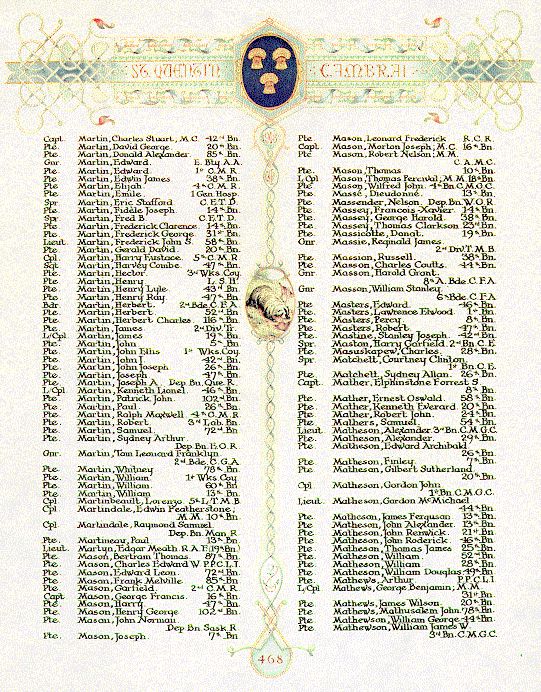 ST. QUENTIN CAMBRAI
Capt. Martin, Charles Stuart, M.C. 42nd Bn.
Pte. Martin, David George 20th Bn.
Pte. Martin, Donald Alexander 85th Bn.
Gnr. Martin, Edward. E. Bty A.A.
Pte. Martin, Edward. 1st C.M.R.
Pte. Martin, Edwin James 38th Bn.
Pte. Martin, Elijah 4th C.M.R.
Pte. Martin, Emile 1 Gen Hosp.
Spr. Martin, Eric Stafford C.E.T.D.
Pte. Martin, Fidèle Joseph 14th Bn.
Spr. Martin, Fred B. C.E.T.D.
Pte. Martin, Frederick Clarence 14th Bn.
Pte. Martin, Frederick George 31st Bn.
Lieut. Martin, Frederick John S. 58th Bn.
Pte. Martin, Gerald David 20th Bn.
Cpl. Martin, Harry Eustace 5th C.M.R.
Sgt. Martin, Harvey Coombe 47th Bn.
Pte. Martin, Hector 3rd Wks. Coy.
Pte. Martin, Henry L.S.H.
Pte. Martin, Henry Lyle 43rd Bn.
Pte. Martin, Henry Ray 47th Bn.
Bdr. Martin, Herbert. 2nd Bde. C.F.A.
Pte. Martin, Herbert 52nd Bn.
Pte. Martin, Herbert Charles 116th Bn.
Pte. Martin, James 2nd Div. Tr.
L/Cpl. Martin, James 19th Bn.
Pte. Martin, John 5th Bn.
Pte. Martin, John Ellis 1st Wks. Coy.
Pte. Martin, John J. 42nd Bn.
Pte. Martin, John Joseph 26th Bn.
Pte. Martin, Joseph 47th Bn.
Pte. Martin, Joseph A. Dep. Bn. Que. R.
L/Cpl. Martin, Kenneth Lionel 46th Bn.
Pte. Martin, Patrick John 102nd Bn.
Pte. Martin, Paul 26th Bn.
Pte. Martin, Ralph Maxwell 4th C.M.R.
Pte. Martin, Robert 3rd Lab. Bn.
Pte. Martin, Samuel 72nd Bn.
Pte. Martin, Sydney Arthur
Dep. Bn. E.O.R.
Gnr. Martin, Tom Leonard Franklyn
2nd Bde. C.G.A.
Pte. Martin, Whitney 78th Bn.
Pte. Martin, William 1st Wks. Coy.
Pte. Martin, William 60th Bn.
Pte. Martin, William 13th Bn.
Cpl. Martinbeault, Lorenzo 5th L.T.M.B.
Cpl. Martindale, Edwin Featherstone;
M.M. 10th Bn.
Cpl. Martindale, Raymond Samuel
Dep. Bn. Man. R.
Pte. Martineau, Paul 13th Bn.
Lieut. Martyn, Edgar Meath R.A.T. (19th Bn)
Pte. Mason, Bertram Thomas 87th Bn.
Pte. Mason, Charles Edward W. P.P.C.L.I.
Pte. Mason, Edward Leon 72nd Bn.
Pte. Mason, Frank Melville 85th Bn.
Pte. Mason, Garfield 2nd C.M.R.
Capt. Mason, George Francis 16th Bn.
Pte. Mason, Harry 47th Bn.
Pte. Mason, Henry George 102nd Bn.
Pte. Mason, John Norman
Dep. Bn. Sask. R.
Pte. Mason, Joseph 7th Bn.
Pte. Mason, Leonard Frederick R.C.R.
Capt. Mason, Morton Joseph; M.C. 16th Bn.
Pte. Mason, Robert Nelson; M.M.
C.A.M.C.
Pte. Mason, Thomas 10th Bn.
L/Cpl. Mason, Thomas Percival; M.M. 18th Bn.
Pte. Mason, Wilfred John 4th Bn. C.M.G.C.
Pte. Massé, Dieudonné 13th Bn.
Pte. Massender, Nelson Dep. Bn. W.O.R.
Pte. Massey, Francois-Xavier 14th Bn.
Pte. Massey, George Harold 38th Bn.
Pte. Massey, Thomas Clarkson 23rd Bn.
Pte. Massicotte, Donat 19th Bn.
Gnr. Massie, Reginald James
2nd Div. T.M.B.
Pte. Massion, Russell 38th Bn.
Pte. Masson, Charles Coutts 44th Bn.
Gnr. Masson, Harold Grant
8th A. Bde. C.F.A.
Gnr. Masson, William Stanley
6th Bde. C.F.A.
Pte. Masters, Edward 46th Bn.
Pte. Masters, Lawrence Elwood 1st Bn.
Pte. Masters, Percy 8th Bn.
Pte. Masters, Robert 47th Bn.
Pte. Mastine, Stanley Joseph 42nd Bn.
Spr. Maston, Harry Garfield 2nd Bn. C.E.
Pte. Masuskapew, Charles 28th Bn.
Spr. Matchett, Courtney Clinton
1st Bn. C.E.
Pte. Matchett, Sydney Allan 26th Bn.
Capt. Mather, Elphinstone Forrest S.
8th Bn.
Pte. Mather, Ernest Oswald 58th Bn.
Pte. Mather, Kenneth Everard 20th Bn.
Pte. Mather, Robert John 24th Bn.
Pte. Mathers, Samuel 54th Bn.
Lieut. Matheson, Alexander 3rd Bn. C.M.G.C.
Pte. Matheson, Alexander 29th Bn.
Pte. Matheson, Edward Archibald
26th Bn.
Pte. Matheson, Finley 7th Bn.
Pte. Matheson, Gilbert Sutherland
20th Bn.
Cpl. Matheson, Gordon John
1st Bn. C.M.G.C.
Lieut. Matheson, Gordon McMichael
44th Bn.
Pte. Matheson, James Ferguson 13th Bn.
Pte. Matheson, John Alexander 13th Bn.
Pte. Matheson, John Renwick 21st Bn.
Pte. Matheson, John Roderick 46th Bn.
Pte. Matheson, Thomas James 25th Bn.
Pte. Matheson, William 52nd Bn.
Pte. Matheson, William 28th Bn.
Pte. Matheson, William Douglas 49th Bn.
Pte. Mathews, Arthur P.P.C.L.I.
L/Cpl. Mathews, George Benjamin; M.M.
31st Bn.
Pte. Mathews, James Wilson 20th Bn.
Pte. Mathews, Mathusalem John 78th Bn.
Pte. Mathewson, William George 44th Bn.
Pte. Mathewson, William James W.
3rd Bn. C.M.G.C.
468